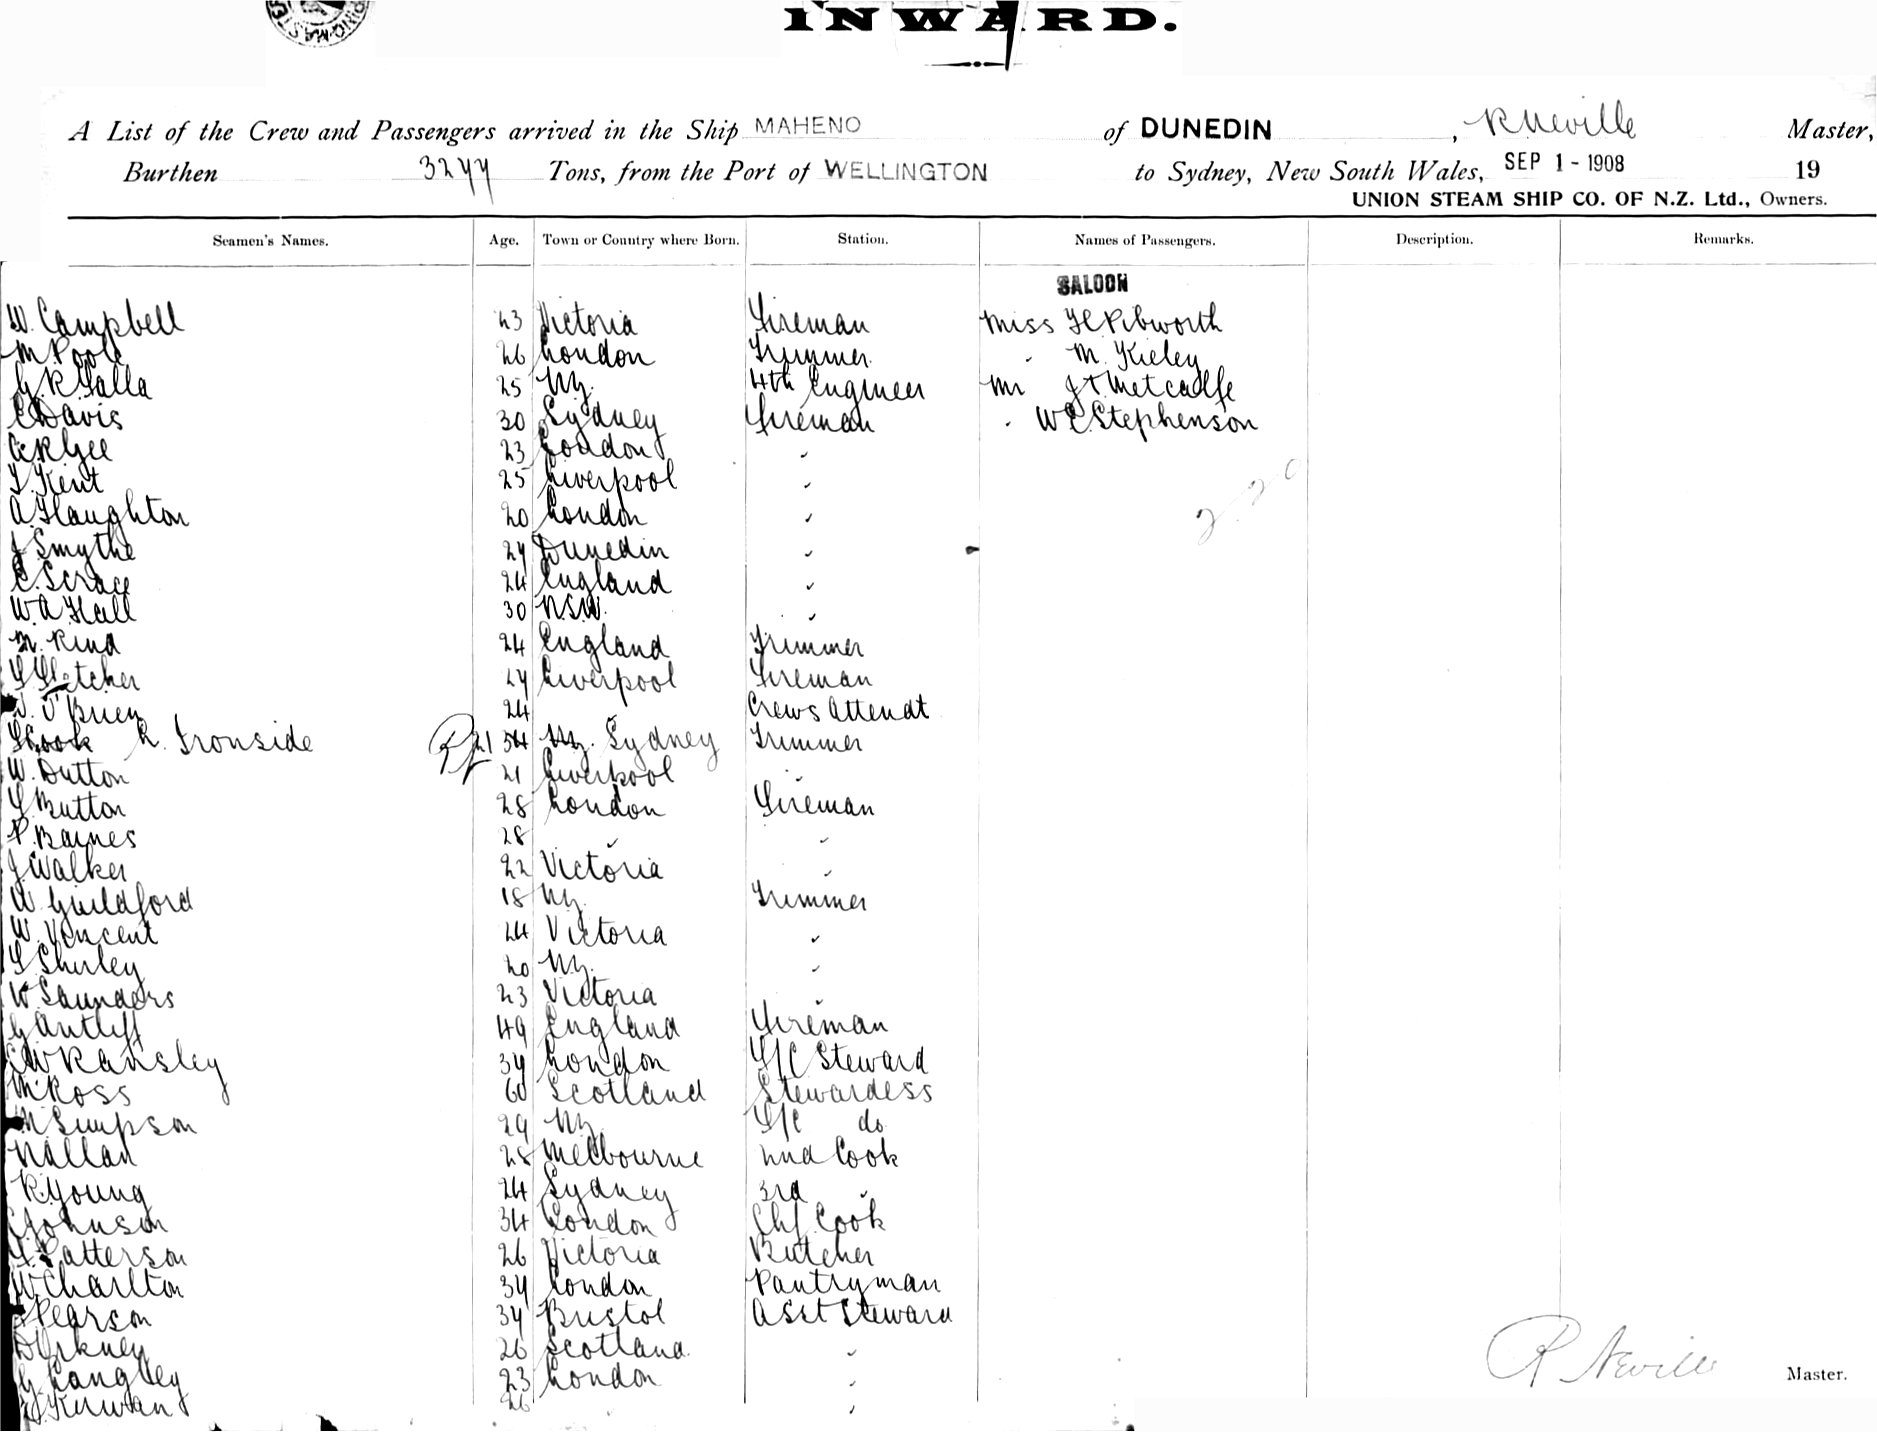 INWARD.
A List of the Crew and Passengers arrived in the Ship MAHENO of DUNEDIN, R Neville Master,
Burthen 3277 Tons, from the Port of WELLINGTON to Sydney, New South Wales, SEP 1 - 1908 19
UNION STEAM SHIP CO. OF N.Z. Ltd., Owners.
Seamen's Names. Age. Town or Country where Born. Station. Names of Passengers. Description. Remarks.
SALOON
W. Campbell 43 Victoria Fireman Miss H Pibworth
M Poole 26 London Trimmer " M. Kieley
G R Galla 25 NZ. 4th Engineer Mr J T Metcalfe
C Davis 30 Sydney Fireman " W E Stephenson
A R Gee 23 London "
T. Kent 25 Liverpool "
A. Haughton 20 London "
J Smythe 27 Dunedin "
C. Scrace 24 England "
W. A Hall 30 N.S.W. "
M. Rind 24 England Trimmer
F Fletcher 27 Liverpool Fireman
O'Brien 24 " Crews Attendt
F Cook R. Ironside 21 54 NZ. Sydney Trimmer
W. Dutton 21 Liverpool "
F Button 28 London Fireman
P. Baines 28 " "
J Walker 22 Victoria "
W Guildford 18 NZ. Trimmer
W. Vincent 24 Victoria "
F Shirley 20 NZ. "
W Saunders 23 Victoria "
G Antliff 49 England Fireman
C W Ransley 37 London F/C Steward
M Ross 60 Scotland Stewardess
M Simpson 29 NZ. F/C do
N Allan 28 Melbourne 2nd Cook
R Young 24 Sydney 3rd "
C Johnson 34 London Chf. Cook
Patterson 26 Victoria Butcher
W Charlton 37 London Pantryman
Pearson 37 Bristol Asst Steward
D Orkney 26 Scotland "
G Langley 23 London "
Kirwan 26 "
R Neville Master.